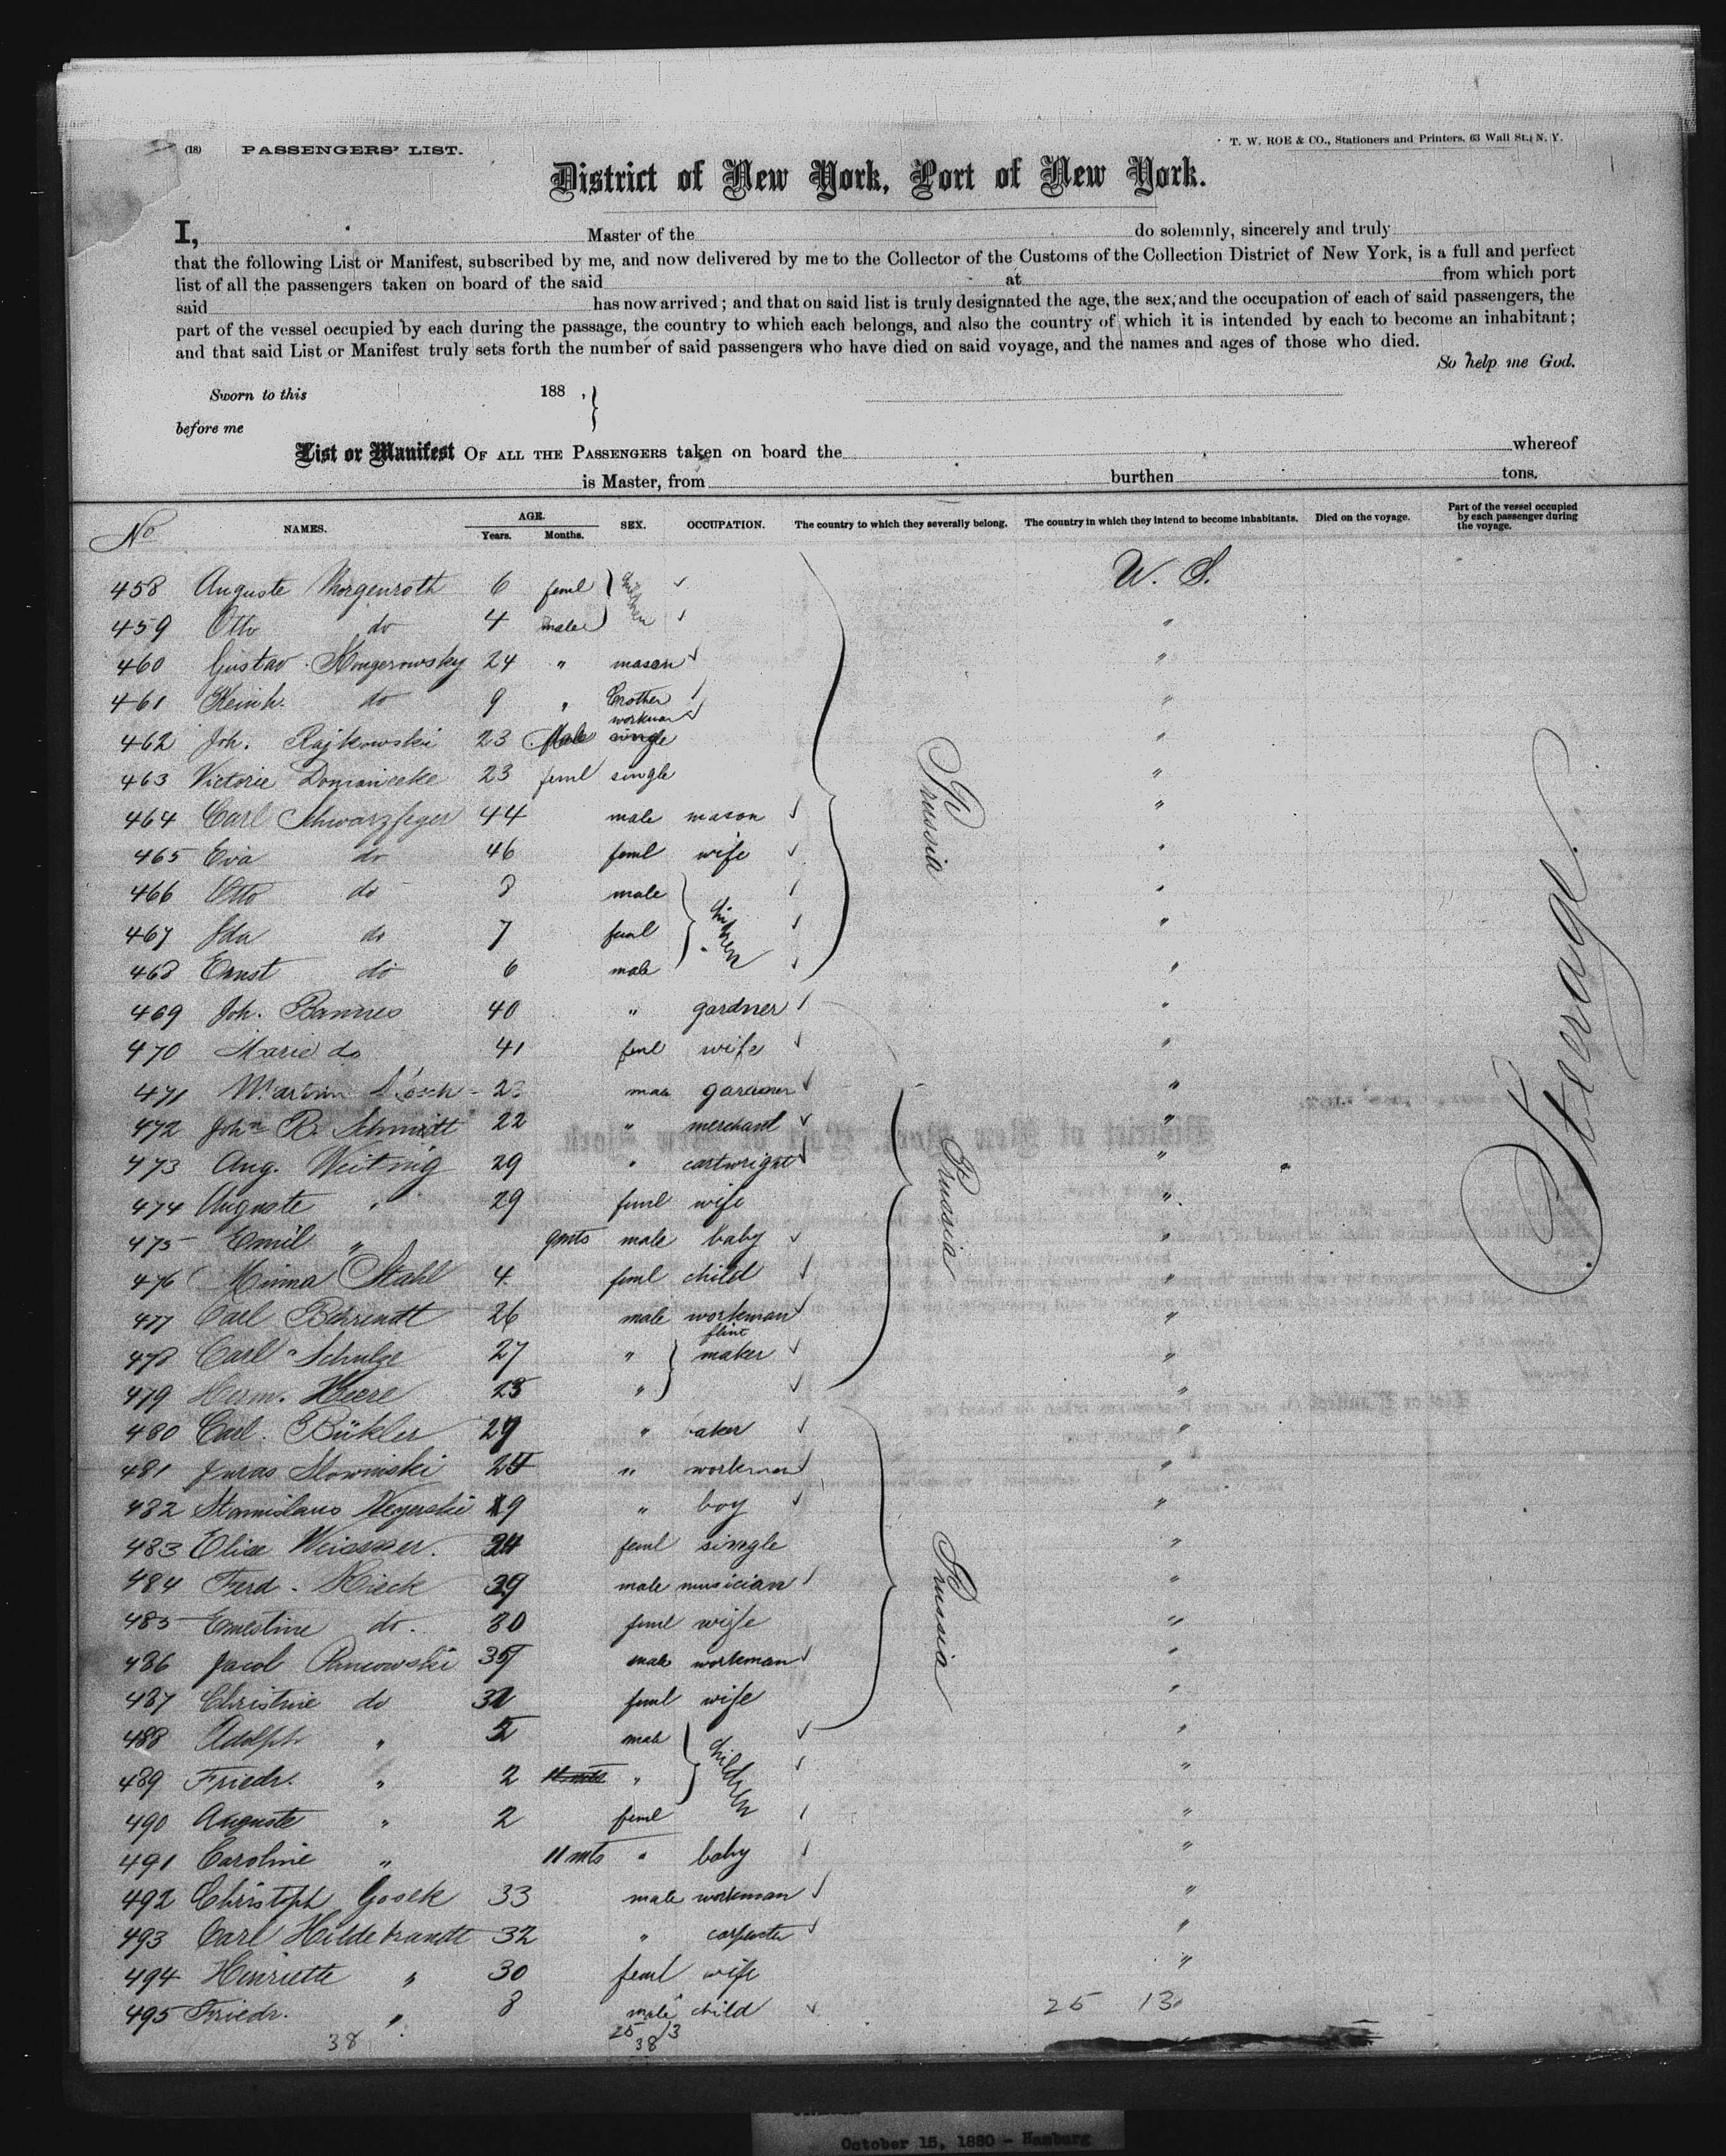 (18) PASSENGERS' LIST.
T. W. ROE & CO., Stationers and Printers, 63 Wall St., N. Y.
District of New York, Port of New York.
I, Master of the do solemnly, sincerely and truly
that the following List or Manifest, subscribed by me, and now delivered by me to the Collector of the Customs of the Collection District of New York, is a full and perfect
list of all the passengers taken on board of the said at from which port
said has now arrived; and that on said list is truly designated the age, the sex, and the occupation of each of said passengers, the
part of the vessel occupied by each during the passage, the country to which each belongs, and also the country of which it is intended by each to become an inhabitant;
and that said List or Manifest truly sets forth the number of said passengers who have died on said voyage, and the names and ages of those who died.
So help me God.
Sworn to this 188 ,
before me
List or Manifest OF ALL THE PASSENGERS taken on board the whereof
is Master, from burthen tons.
No NAMES. AGE. Years. Months. SEX. OCCUPATION. The country to which they severally belong. The country in which they intend to become inhabitants. Died on the voyage. Part of the vessel occupied by each passenger during the voyage.
458 Auguste Morgenroth 6 feml children U. S.
459 Otto do 4 male "
460 Gustav 24 " mason "
461 Heinh. do 9 " brother "
462 Joh. Rajkowski 23 Male workman single "
463 Victorie 23 feml single Prussia "
464 Carl Schwarzfeger 44 male mason "
465 Eva do 46 feml wife "
466 Otto do 8 male children "
467 Ida do 7 feml "
468 Ernst do 6 male "
469 Joh. 40 " gardner "
470 Marie do 41 feml wife "
471 male gardner "
472 John R. Schmitt 22 " merchant "
473 Aug. Weitnig 29 " cartwright "
474 Auguste " 29 feml wife Prussia "
475 Emil " 9mts male baby "
476 Minna Stahl 4 feml child "
477 Carl Behrendt 26 male workman "
478 Carl Schulze 27 " flint maker "
479 Herm. Heere "
480 Carl Bükler " "
481 Juras Slowinski " workman "
482 Stanislaus " boy "
483 Elise 24 feml single "
484 Ferd. 39 male musician Prussia "
485 Ernestine do. 30 feml wife "
486 Jacob male workman "
487 Christine do feml wife "
488 Adolph " 5 male children "
489 Friedr. " 2 11 mts " "
490 Auguste " 2 feml "
491 Caroline " 11 mts " baby "
492 Christoph Gosek 33 male workman "
493 Carl Hildebrandt 32 " carpenter "
494 Henriette " 30 feml wife "
495 Friedr. " 8 male child 25 13
38 25 13
38
Steerage.
October 15, 1880 - Hamburg